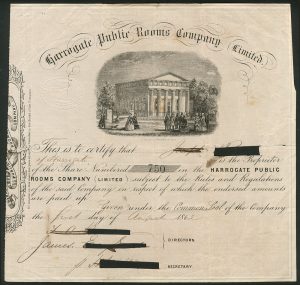 Harrogate Public Rooms Company Limited.
This is to certify that
of Harrogate is the Proprietor
of the Share Numbered 750 in the HARROGATE PUBLIC
ROOMS COMPANY LIMITED subject to the Rules and Regulations
of the said Company in respect of which the endorsed amounts
are paid up
Given under the Common Seal of the Company
the first day of August 186
James
DIRECTORS
SECRETARY